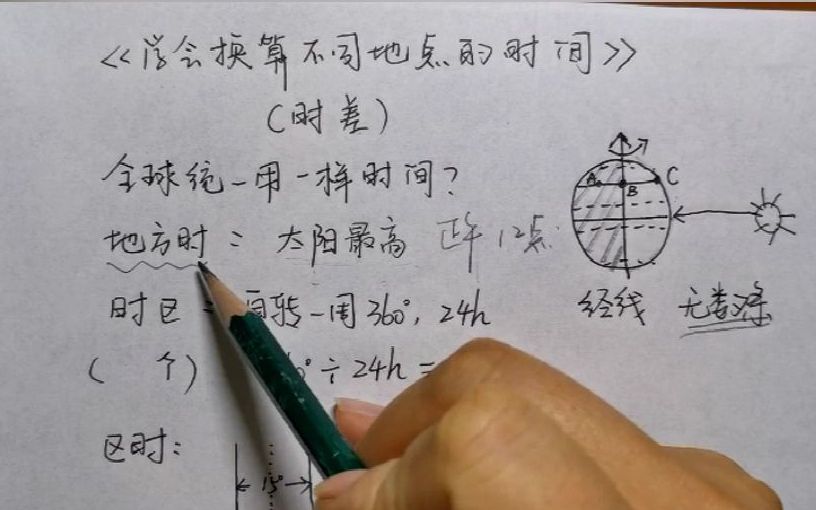 《学会换算不同地点的时间》
(时差)
全球统一用一样时间?
地方时: 太阳最高 正午12点
时区: 自转一周360°, 24h
( 个) 0°÷24h=
区时:
15°
A
B
C
经线 无数条